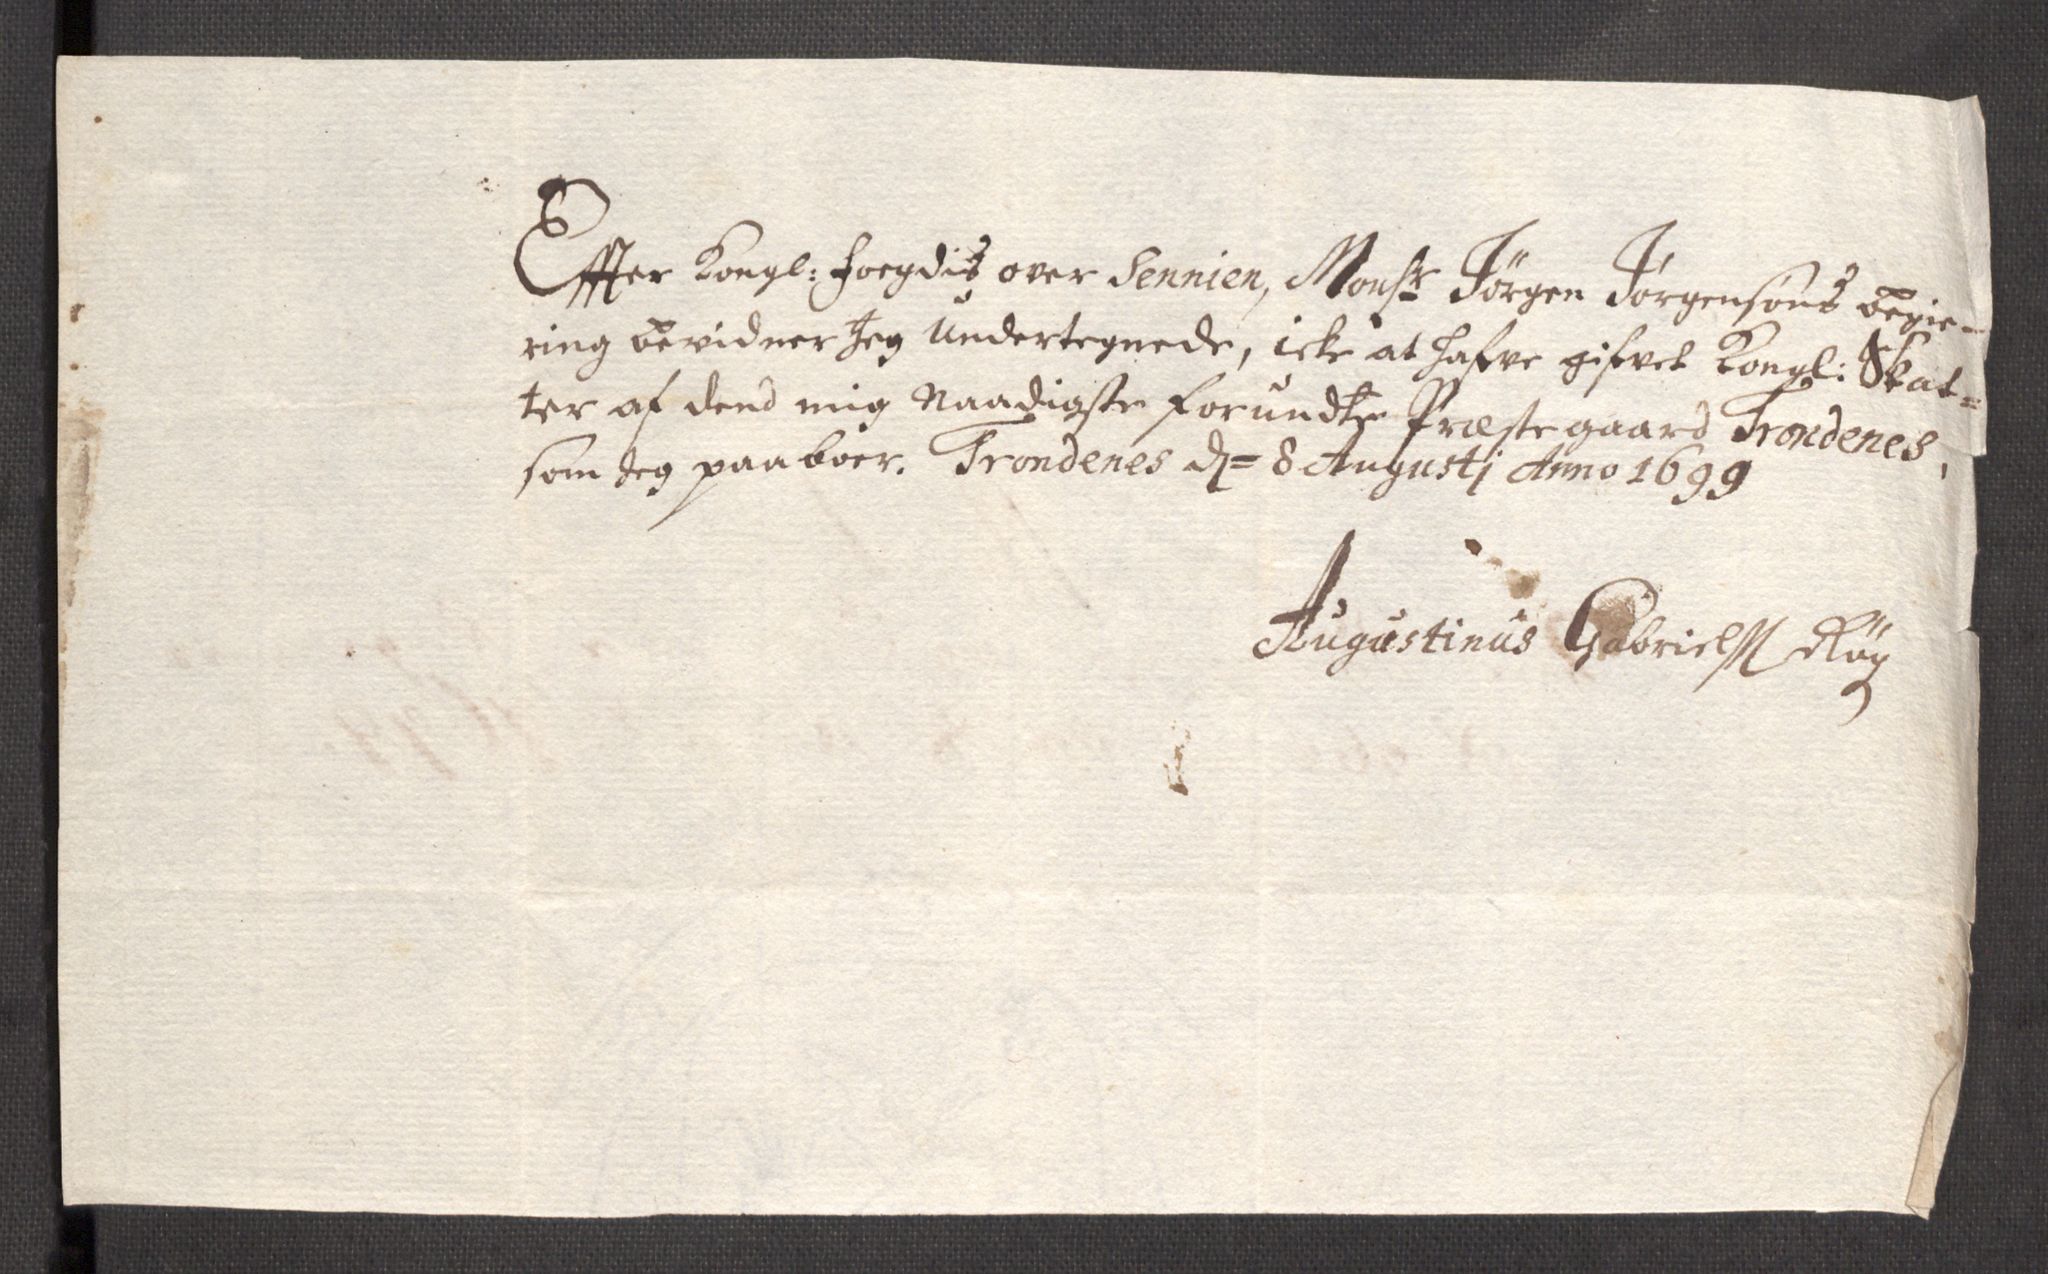 Effter Kongl: foegdis over Sennien, Monsr Jörgen Jörgensöns begie-
ring bevidner Jeg Undertegnede, icke at hafve gifvet Kongl: Skat=
ter af dend mig Naadigste forundte Præstegaard Trondenes,
som Jeg paaboer. Trondenes d= 8 Augustj Anno 1699
Augustinus Gabrielss Röy